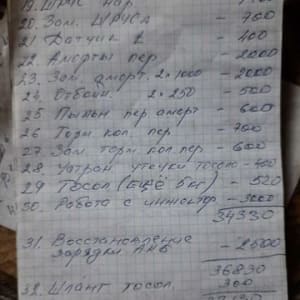 19. ШРУС нар.
20. Зам. ШРУСа - 700
21 Датчик 2 - 400
22. Аморты пер - 2000
23. Зам. аморт. 2×1000 - 2000
24. Отбойн. 2×250 - 500
25 Пыльн пер аморт - 600
26 Торм кол. пер - 700
27. Зам. торм кол. пер - 600
28 Устран утечки тосол - 400
29 Тосол (ещё 5кг) - 520
30. Работа с инжектор - 3000
34330
31. Восстановление зарядки АКБ - 2500
36830
32. Шланг тосол 300